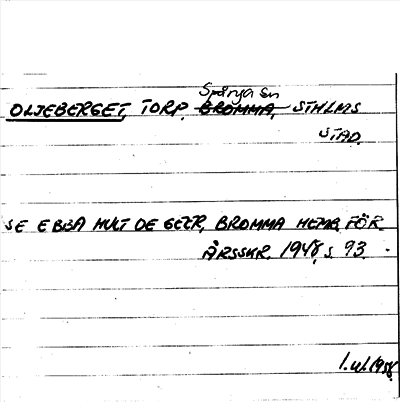 Spånga sn
OLJEBERGET, TORP. BROMMA, STHLMS
STAD.
SE EBBA HULT DE GEER, BROMMA HEMB. FÖR.
ÅRSSKR. 1948, s. 93.
1.VI.1958